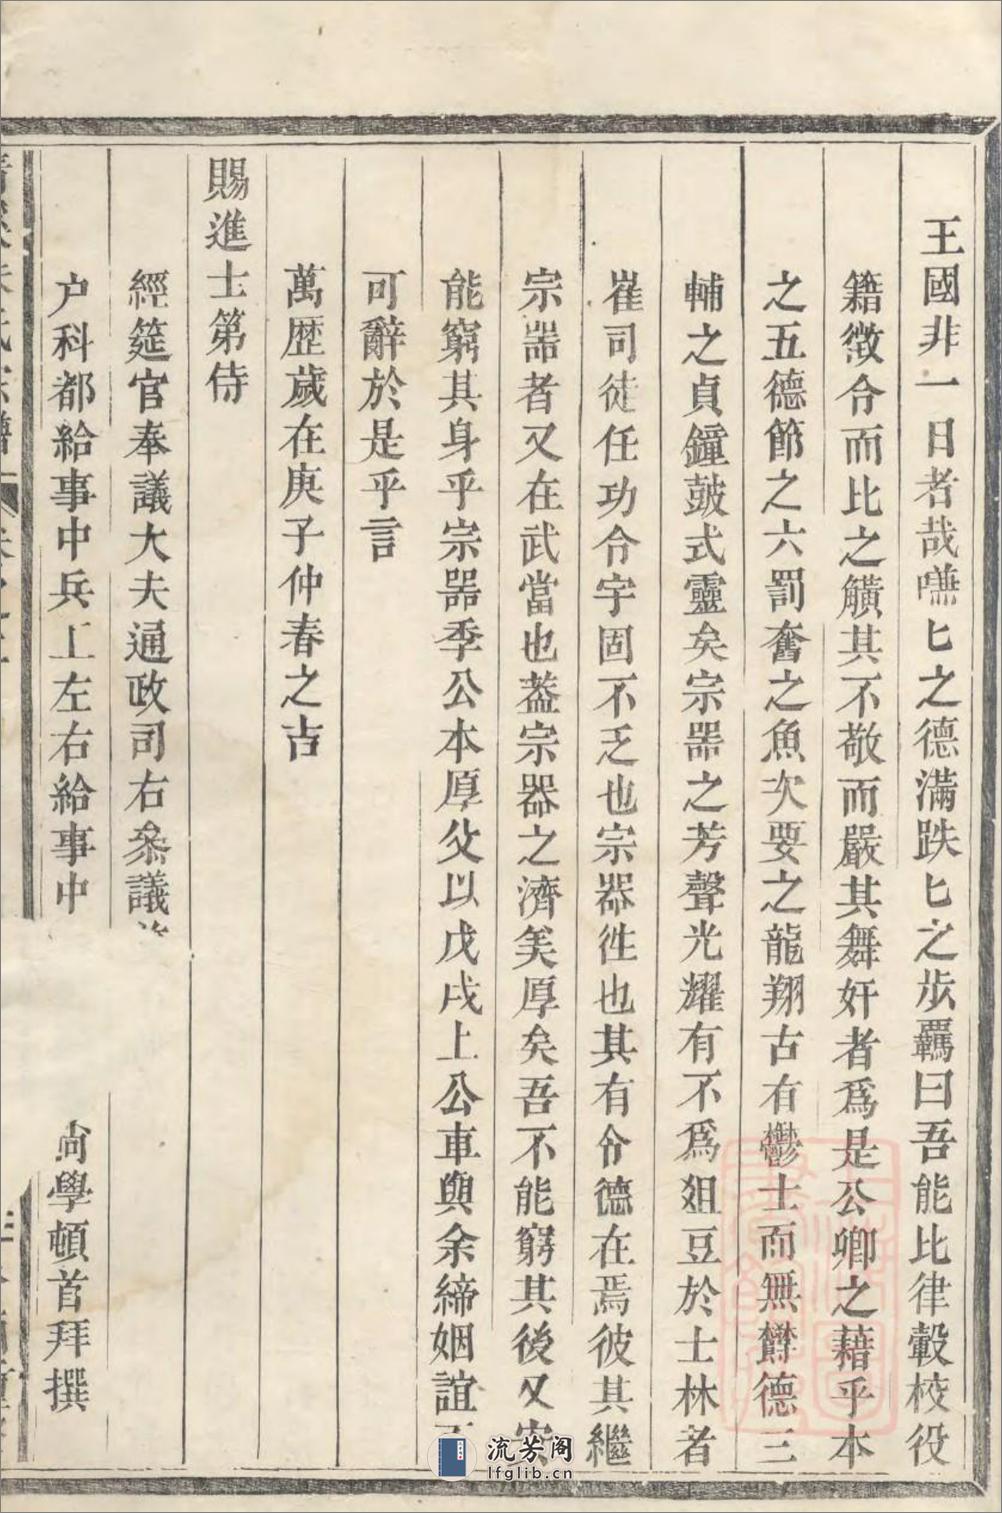 王國非一日者哉嘸匕之德滿跌匕之步羈曰吾能比律轂校役
籍徵令而比之觵其不敬而嚴其舞奸者爲是公卿之藉乎本
之五德節之六罰奮之魚次要之龍翔古有鬱士而無欎德三
輔之貞鐘皷式靈矣宗噐之芳聲光耀有不爲俎豆於士林者
崔司徒任功令宇固不乏也宗器徃也其有令德在焉彼其繼
宗噐者又在武當也葢宗器之濟美厚矣吾不能窮其後又安
能窮其身乎宗噐季公本厚父以戊戌上公車與余締姻誼
可辭於是乎言
萬歴歲在庚子仲春之吉
賜進士第侍
經筵官奉議大夫通政司右叅議
户科都給事中兵工左右給事中
尚學頓首拜撰
流芳阁
lfglib.cn